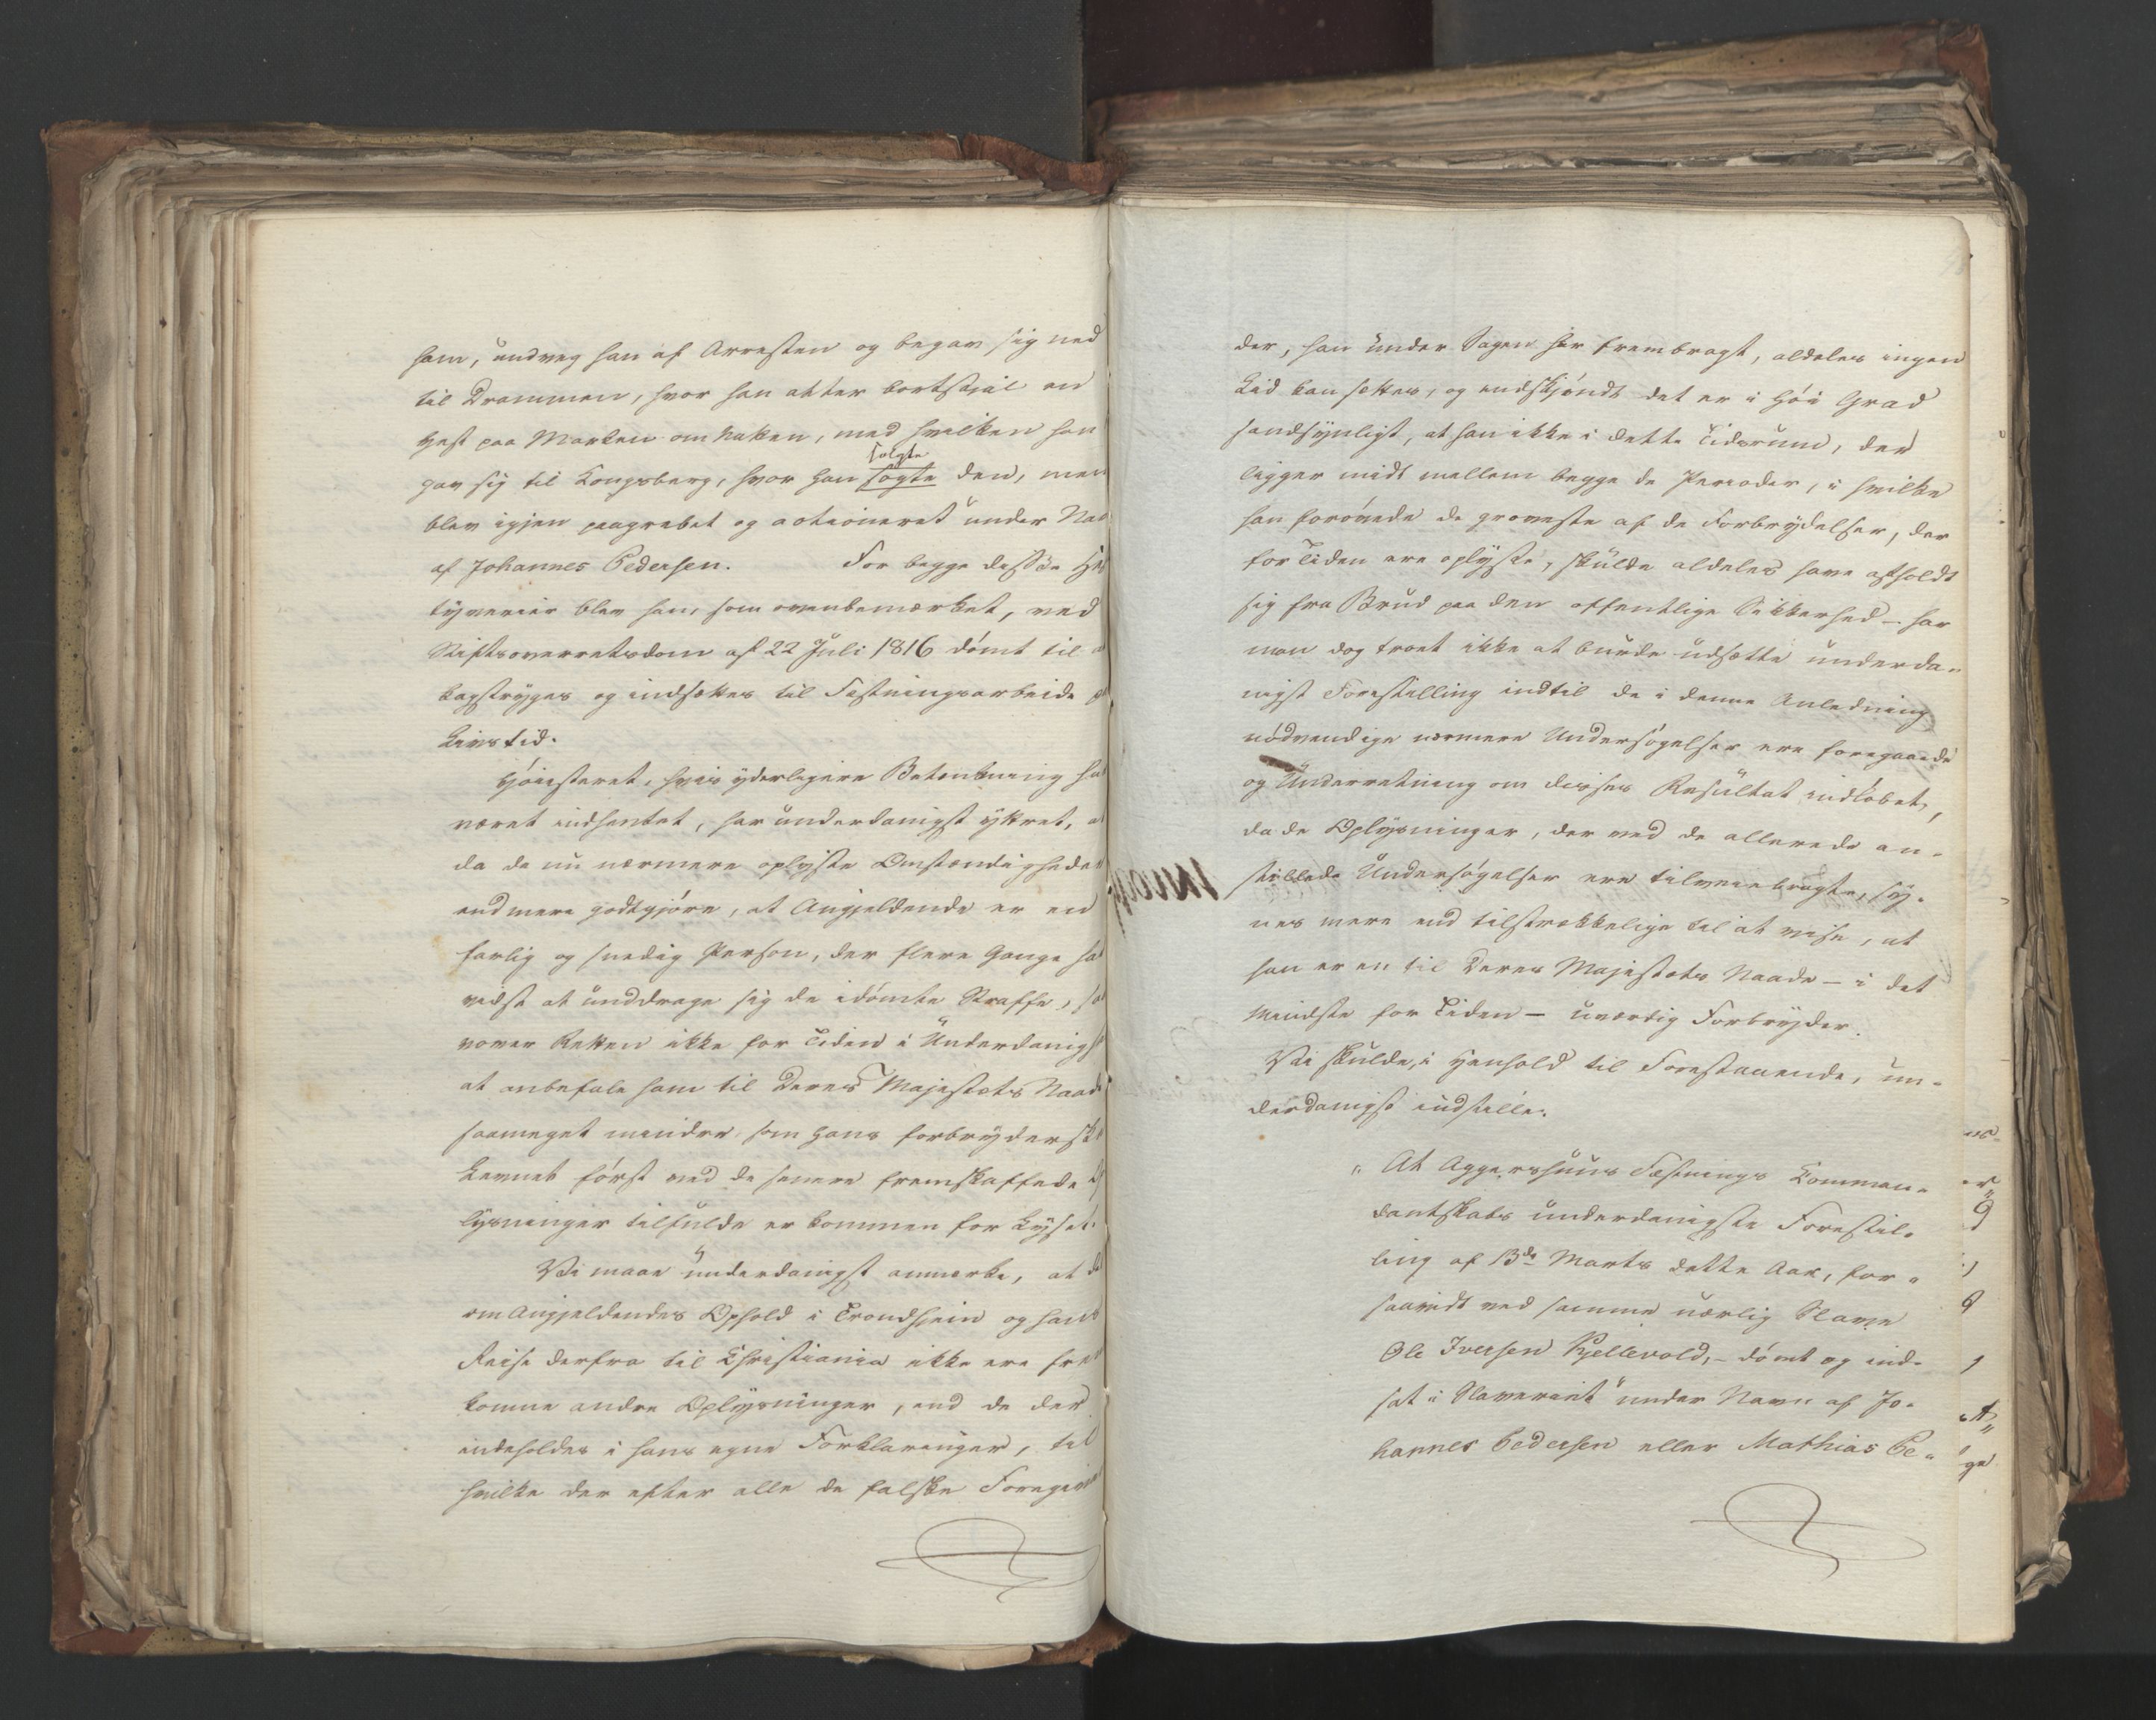 ham, undveg han af Arresten og begav sig ned
til Drammen, hvor han atter bortstjal en
Hest paa Marken om Natten, med hvilken han
gav sig til Kongsberg, hvor han søgte solgte den, men
blev igjen paagrebet og actioneret under Nav
af Johannes Pedersen. For begge disse He
tyverier blev han, som ovenbemærket, ved
Stiftsoverretsdom af 22 Juli 1816 dømt til a
kagstryges og indsættes til Fæstningsarbeide p
Livstid.
Høiesteret, hvis yderligere Betænkning ha
været indhentet, har underdanigst yttret, a
da de nu nærmere oplyste Omstændigheder
end mere godtgjøre, at Angjeldende er en
farlig og snedig Person, der flere Gange ha
vidst at unddrage sig de idømte Straffe, saa
vover Retten ikke for Tiden i Underdanigh
at anbefale ham til Deres Majestæts Naade
saameget mindre, som hans forbryderske
Levnet først ved de senere fremskaffede Op
lysninger tilfulde er kommen for Lyset.
Vi maae underdanigst anmærke, at de
om Angjeldendes Ophold i Trondhjem og hans
Reise derfra til Christiania ikke ere frem
komne andre Oplysninger, end de der
indeholdes i hans egne Forklaringer, til
hvilke der efter alle de falske Foregiven
der, han under Sagen har frembragt, aldeles ingen
Lid kan sættes, og endskjøndt det er i høi Grad
sandsynligt, at han ikke i dette Tidsrum, der
ligger midt mellem begge de Perioder, i hvilke
han forøvede de groveste af de Forbrydelser, der
for Tiden ere oplyste, skulde aldeles have afholdt
sig fra Brud paa den offentlige Sikkerhed – har
man dog troet ikke at burde udsætte underda-
nigst Forestilling indtil de i denne Anledning
nødvendige nærmere Undersøgelser ere foregaaede
og Underretning om disses Resultat indløbet,
da de Oplysninger, der ved de allerede an-
stillede Undersøgelser ere tilveiebragte, sy-
nes mere end tilstrækkelige til at vise, at
han er en til Deres Majestæts Naade – i det
mindste for Tiden – uværdig Forbryder.
Vi skulde, i Henhold til Forestaaende, un-
derdanigst indstille:
"At Aggershuus Fæstnings Komman-
dantskabs underdanigste Forestil-
ling af 13de Marts dette Aar, for-
saavidt ved samme nærlig Slaven
Ole Iversen Kjellevold, – dømt og ind-
sat i Slaveriet under Navn af Jo-
hannes Pedersen eller Mathias Pe-